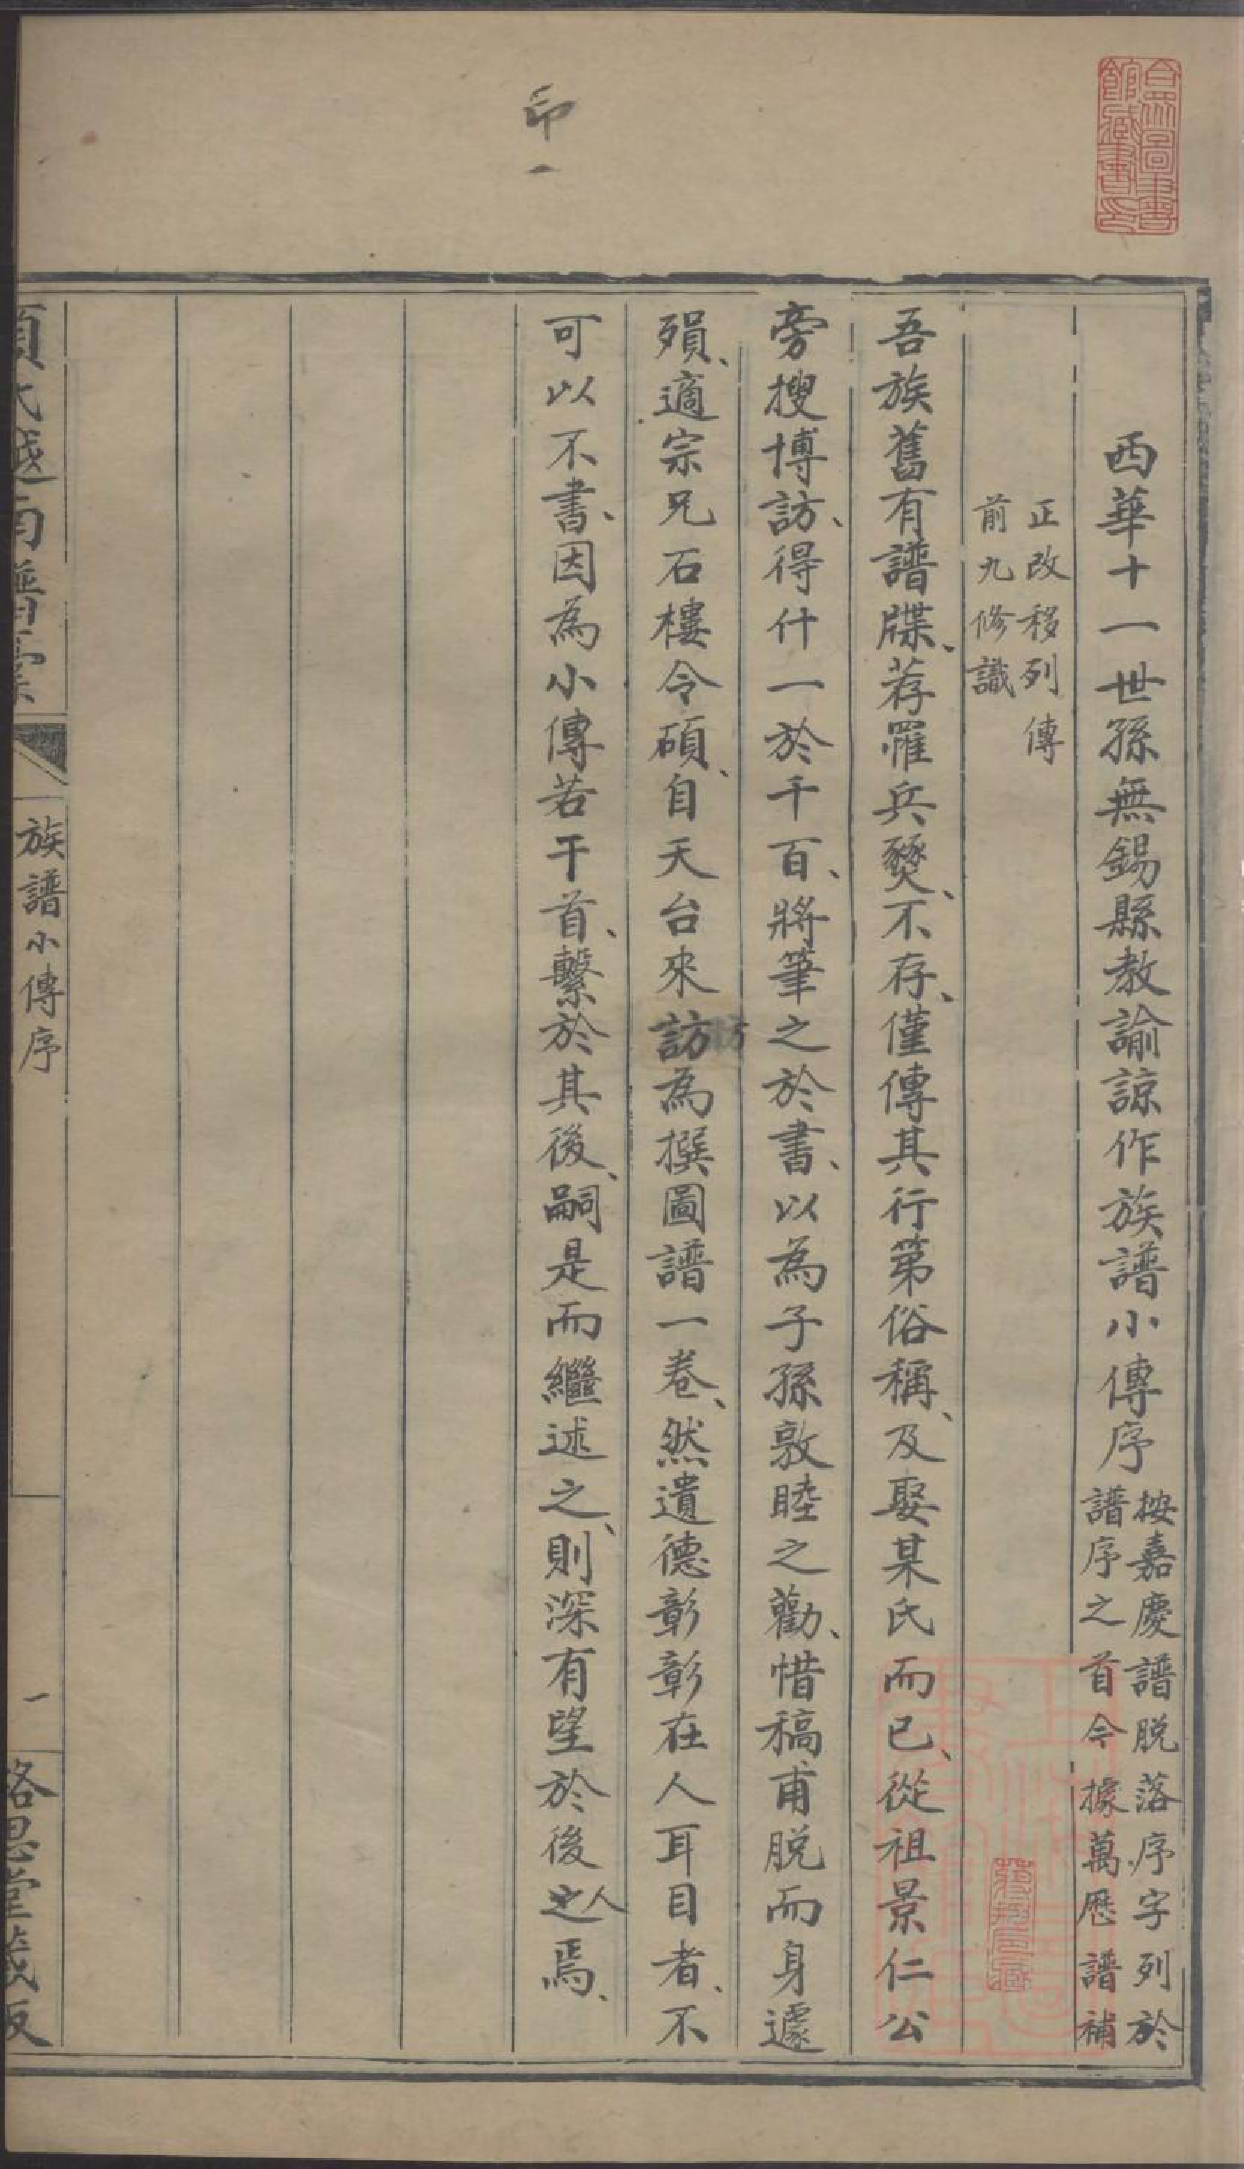 印一
合眾圖書
館藏書印
西華十一世孫無錫縣教諭諒作族譜小傳序
按嘉慶譜脱落序字列於
譜序之首今據萬厯譜補
正改移列傳
前九修識
吾族舊有譜牒、荐罹兵燹、不存、僅傳其行第俗稱、及娶某氏而已、從祖景仁公
旁搜博訪、得什一於千百、將筆之於書、以為子孫敦睦之勸、惜稿甫脱而身遽
殞、適宗兄石樓令碩、自天台來訪為撰圖譜一卷、然遺德彰彰在人耳目者、不
可以不書、因為小傳若干首、繫於其後、嗣是而繼述之、則深有望於後之人焉、
族譜小傳序
一